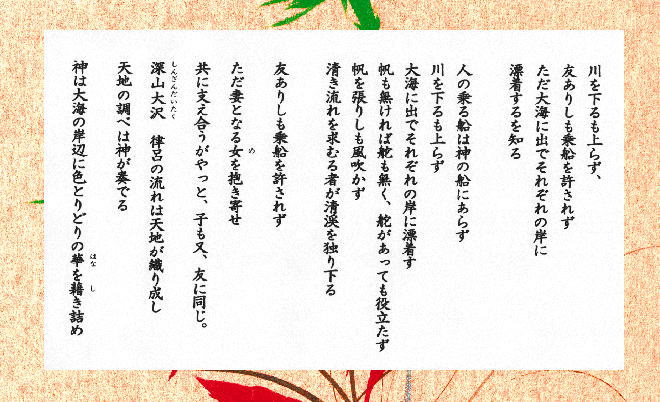 川を下るも上らず、
友ありしも乗船を許されず
ただ大海に出でそれぞれの岸に
漂着するを知る
人の乗る船は神の船にあらず
川を下るも上らず
大海に出でそれぞれの岸に漂着す
帆も無ければ舵も無く、舵があっても役立たず
帆を張りしも風吹かず
清き流れを求むる者が清渓を独り下る
友ありしも乗船を許されず
ただ妻となる女を抱き寄せ
め
共に支え合うがやっと、子も又、友に同じ。
深山大沢 律呂の流れは天地が織り成し
しんざんだいたく
天地の調べは神が奏でる
神は大海の岸辺に色とりどりの華を藉き詰め
はな
し